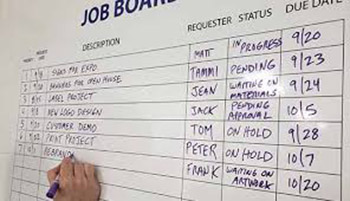 JOB BOARD
DESCRIPTION REQUESTER STATUS DUE DATE
SIGNS FOR EXPO MATT IN PROGRESS 9/20
BANNERS FOR OPEN HOUSE TAMMI PENDING 9/23
LABEL PROJECT JEAN WAITING ON MATERIALS 9/24
NEW LOGO DESIGN JACK PENDING APPROVAL 10/5
CUSTOMER DEMO TOM ON HOLD 9/28
PRINT PROJECT PETER ON HOLD 10/7
REBRAND FRANK WAITING ON ARTWORK 10/20